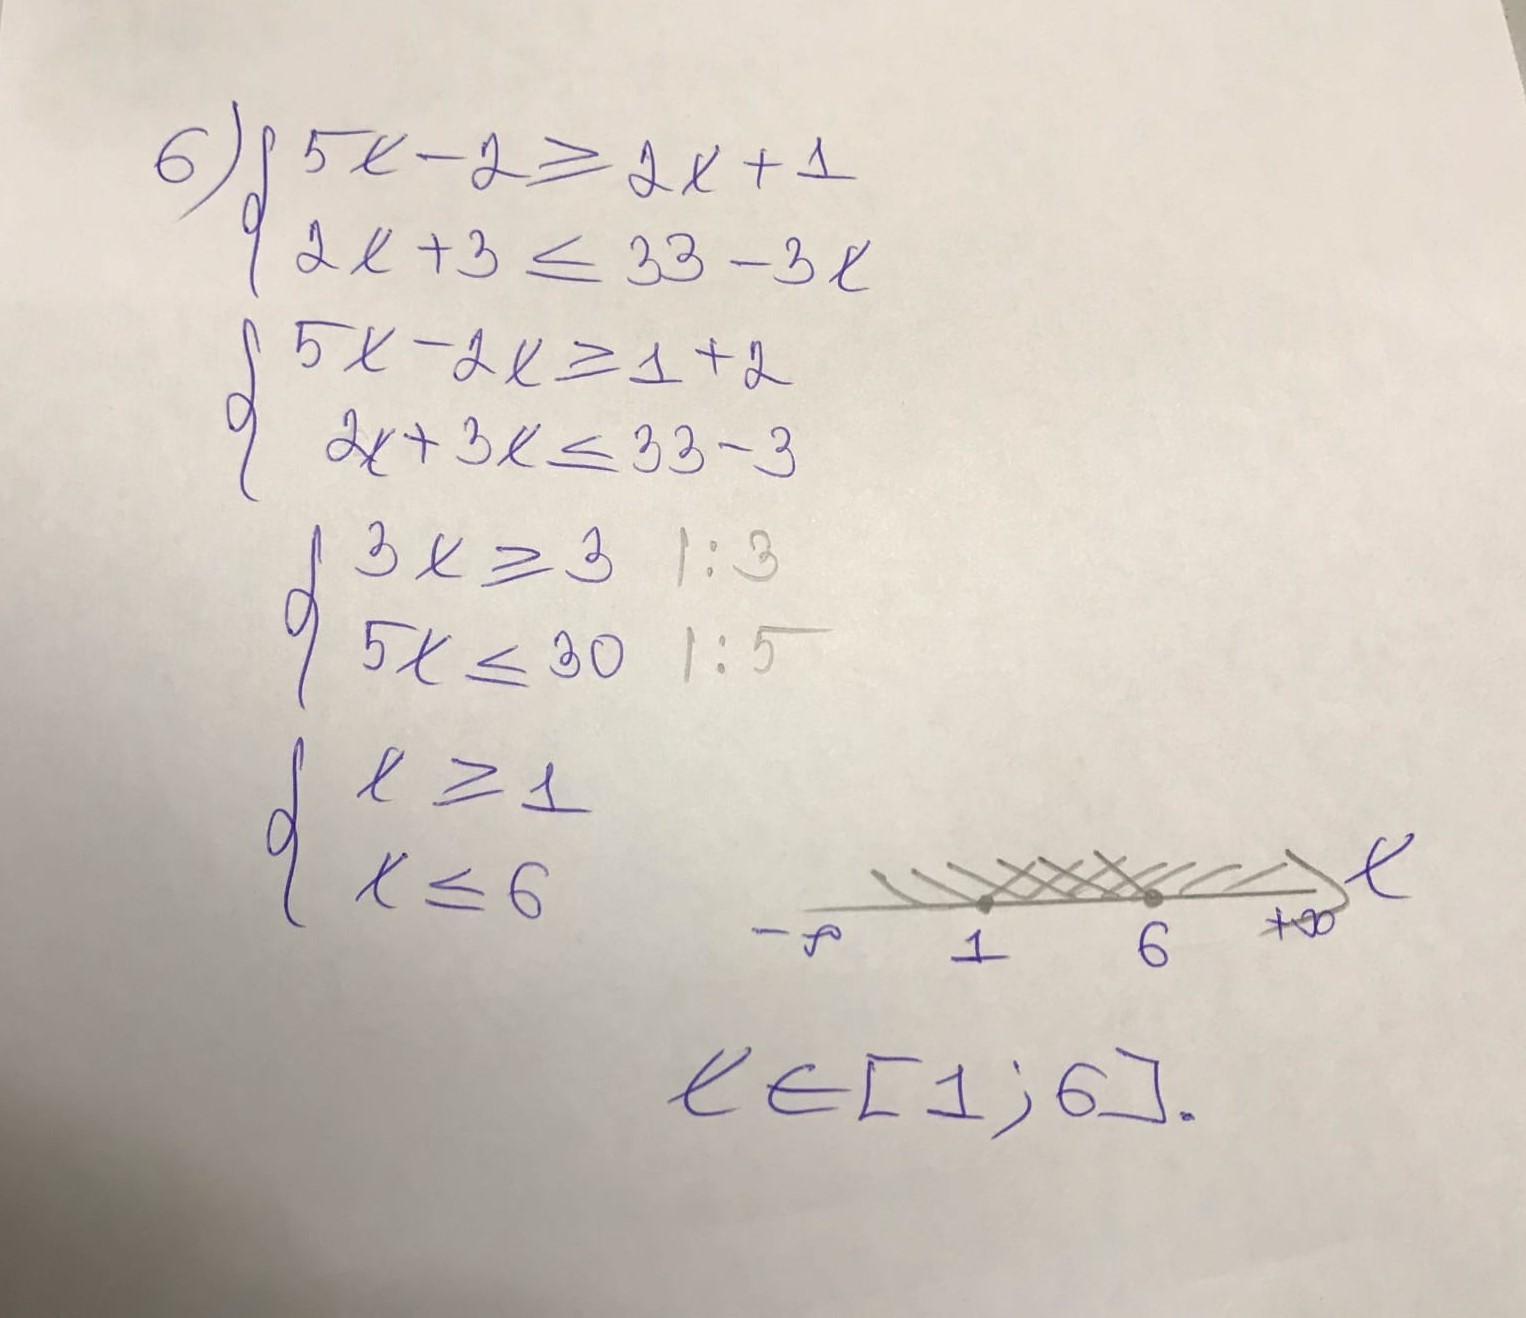 6) { 5x - 2 ≥ 2x + 1
2x + 3 ≤ 33 - 3x
{ 5x - 2x ≥ 1 + 2
2x + 3x ≤ 33 - 3
{ 3x ≥ 3 |:3
5x ≤ 30 |:5
{ x ≥ 1
x ≤ 6
x
-∞ 1 6 +∞
x ∈ [1; 6].